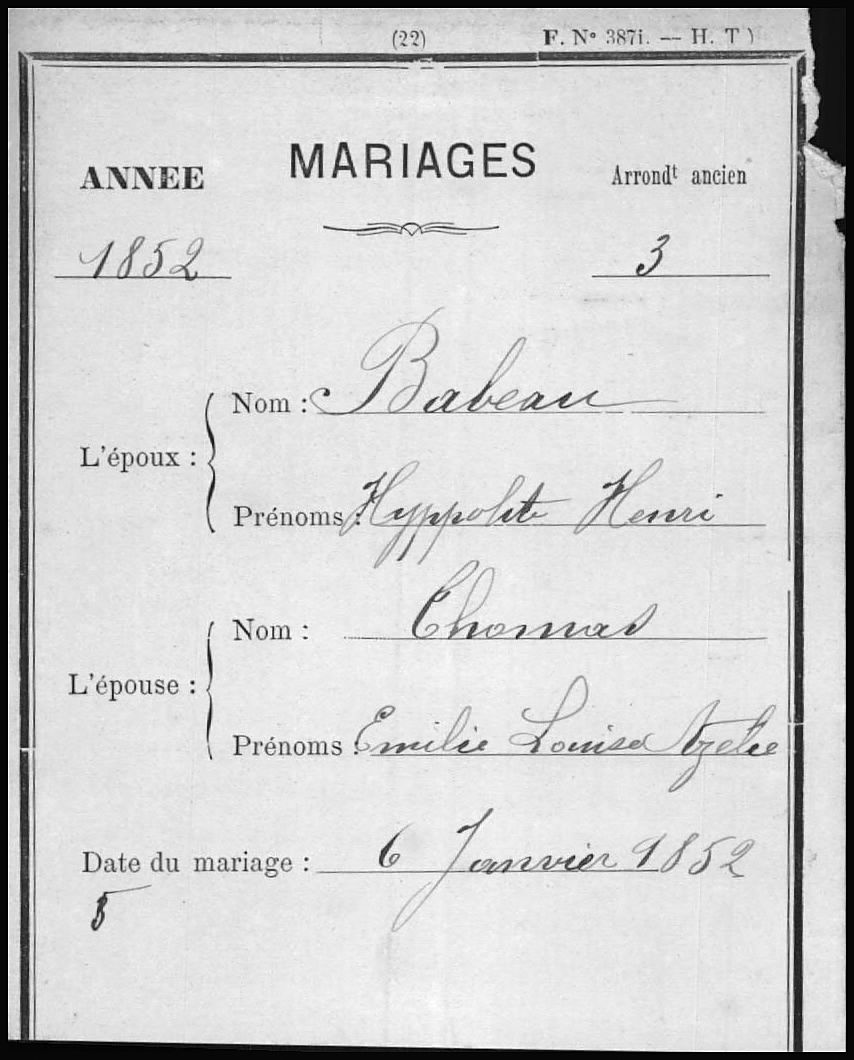 (22) F. N° 387i. — H. T
ANNEE MARIAGES Arrondt ancien
1852 3
Nom : Babeau
L'époux :
Prénoms : Hyppolite Henri
Nom : Thomas
L'épouse :
Prénoms : Emilie Louise Azelie
Date du mariage : 6 Janvier 1852